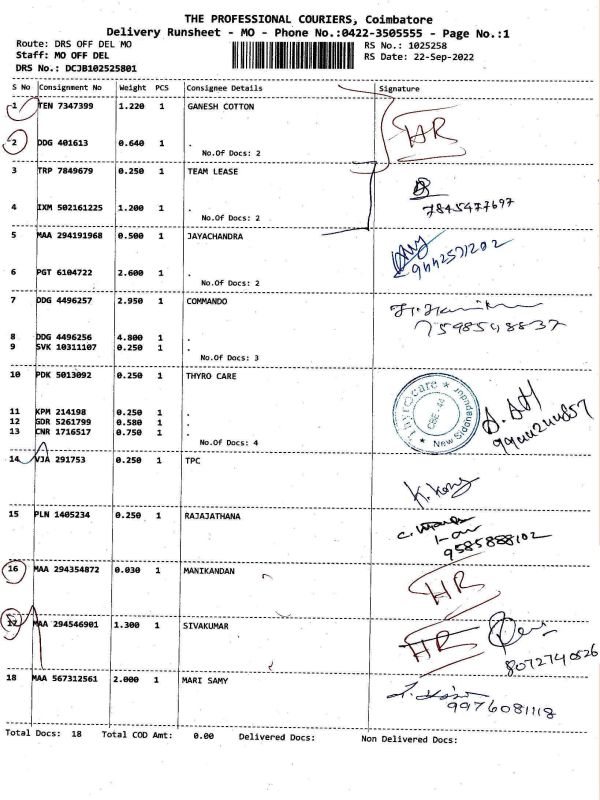 THE PROFESSIONAL COURIERS, Coimbatore
Delivery Runsheet - MO - Phone No.:0422-3505555 - Page No.:1
Route: DRS OFF DEL MO RS No.: 1025258
Staff: MO OFF DEL RS Date: 22-Sep-2022
DRS No.: DCJB102525801
S No Consignment No Weight PCS Consignee Details Signature
1 TEN 7347399 1.220 1 GANESH COTTON
HR
2 DDG 401613 0.640 1 .
No.Of Docs: 2
3 TRP 7849679 0.250 1 TEAM LEASE
4 IXM 502161225 1.200 1 . 7845477697
No.Of Docs: 2
5 MAA 294191968 0.500 1 JAYACHANDRA
9442571202
6 PGT 6104722 2.600 1 .
No.Of Docs: 2
7 DDG 4496257 2.950 1 COMMANDO
7598548837
8 DDG 4496256 4.800 1 .
9 SVK 10311107 0.250 1 .
No.Of Docs: 3
10 PDK 5013092 0.250 1 THYRO CARE
Thyrocare * New Sidhapudur *
CBE - 44
11 KPM 214198 0.250 1 .
12 GDR 5261799 0.580 1 .
13 CNR 1716517 0.750 1 .
No.Of Docs: 4
14 VJA 291753 0.250 1 TPC
15 PLN 1405234 0.250 1 RAJAJATHANA
9585888102
16 MAA 294354872 0.030 1 MANIKANDAN
HR
17 MAA 294546901 1.300 1 SIVAKUMAR
HR
8072740526
18 MAA 567312561 2.000 1 MARI SAMY
9976081118
Total Docs: 18 Total COD Amt: 0.00 Delivered Docs: Non Delivered Docs: